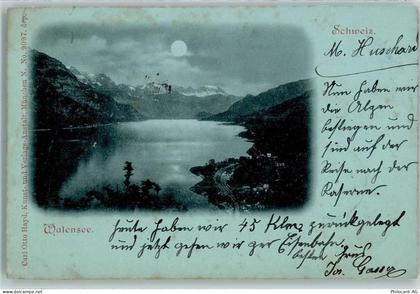 Schweiz.
M. Huschari
Nun haben wir
die Alpen
bestiegen und
sind auf der
Reise nach der
Kaserne.
Walensee.
heute haben wir 45 Klm zurückgelegt
und jetzt gehen wir der Eisenbahn
Gruss
Jos.
Carl Otto Hayd, Kunst- und Verlags-Anstalt, München N. No. 3037. dep.
© oldthing
PICCLICK.AG